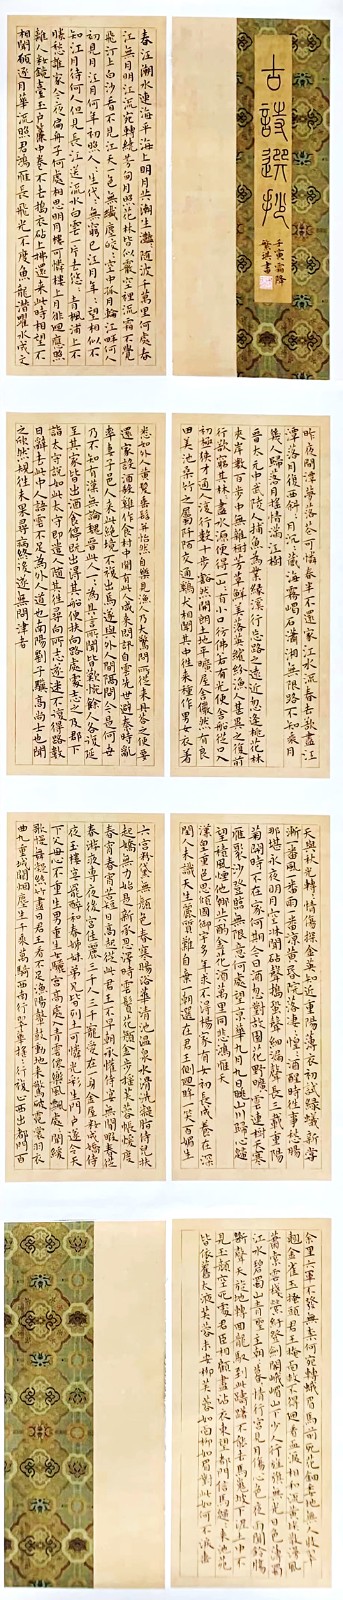 古詩選抄
壬寅霜降
繁淇書
春江潮水連海平海上明月共潮生灩灩隨波千萬里何處春
江無月明江流宛轉繞芳甸月照花林皆似霰空裡流霜不覺
飛汀上白沙看不見江天一色無纖塵皎皎空中孤月輪江畔何人
初見月江月何年初照人人生代代無窮已江月年年望相似不
知江月待何人但見長江送流水白雲一片去悠悠青楓浦上不
勝愁誰家今夜扁舟子何處相思明月樓可憐樓上月徘徊應照
離人妝鏡臺玉戶簾中卷不去搗衣砧上拂還來此時相望不
相聞願逐月華流照君鴻雁長飛光不度魚龍潛躍水成文
昨夜閑潭夢落花可憐春半不還家江水流春去欲盡江
潭落月復西斜斜月沉沉藏海霧碣石瀟湘無限路不知乘月
幾人歸落月搖情滿江樹
晉太元中武陵人捕魚為業緣溪行忘路之遠近忽逢桃花林
夾岸數百步中無雜樹芳草鮮美落英繽紛漁人甚異之復前
行欲窮其林林盡水源便得一山山有小口彷彿若有光便舍船從口入
初極狹才通人復行數十步豁然開朗土地平曠屋舍儼然有良
田美池桑竹之屬阡陌交通雞犬相聞其中往來種作男女衣著
悉如外人黃髮垂髫並怡然自樂見漁人乃大驚問所從來具答之便要
還家設酒殺雞作食村中聞有此人咸來問訊自雲先世避秦時亂
率妻子邑人來此絕境不復出焉遂與外人間隔問今是何世
乃不知有漢無論魏晉此人一一為具言所聞皆嘆惋餘人各復延
至其家皆出酒食停既出得其船便扶向路處處志之及郡下
詣太守說如此太守即遣人隨其往尋向所志遂迷不復得路數
日辭去此中人語雲不足為外人道也南陽劉子驥高尚士也聞
之欣然規往未果尋病終後遂無問津者
天與秋光轉轉情傷探金英知近重陽薄衣初試綠蟻新嘗
漸一番風一番雨一番涼黃昏院落淒淒惶惶酒醒時往事愁腸
那堪永夜明月空床聞砧聲搗蛩聲細漏聲長三載重陽
菊開時不在家何期今日酒忽對故園花野曠雲連樹天寒
雁聚沙登臨無限意何處望京華九月九日眺山川歸心歸
望積風煙他鄉共酌金花酒萬里同悲鴻雁天
漢皇重色思傾國御宇多年求不得楊家有女初長成養在深
閨人未識天生麗質難自棄一朝選在君王側回眸一笑百媚生
六宮粉黛無顏色春寒賜浴華清池溫泉水滑洗凝脂侍兒扶
起嬌無力始是新承恩澤時雲鬢花顏金步搖芙蓉帳暖度
春宵春宵苦短日高起從此君王不早朝承歡侍宴無閑暇春從
春遊夜專夜後宮佳麗三千人三千寵愛在一身金屋妝成嬌侍
夜玉樓宴罷醉和春姊妹弟兄皆列土可憐光彩生門戶遂令天
下父母心不重生男重生女驪宮高處入青雲仙樂風飄處處聞緩
歌慢舞凝絲竹盡日君王看不足漁陽鼙鼓動地來驚破霓裳羽衣
曲九重城闕煙塵生千乘萬騎西南行翠華搖搖行復止西出都門百
余里六軍不發無奈何宛轉蛾眉馬前死花鈿委地無人收翠
翹金雀玉搔頭君王掩面救不得回看血淚相和流黃埃散漫風
蕭索雲棧縈紆登劍閣峨嵋山下少人行旌旗無光日色薄蜀
江水碧蜀山青聖主朝朝暮暮情行宮見月傷心色夜雨聞鈴腸
斷聲天旋地轉回龍馭到此躊躇不能去馬嵬坡下泥土中不
見玉顏空死處君臣相顧盡沾衣東望都門信馬歸歸來池苑
皆依舊太液芙蓉未央柳芙蓉如面柳如眉對此如何不淚垂